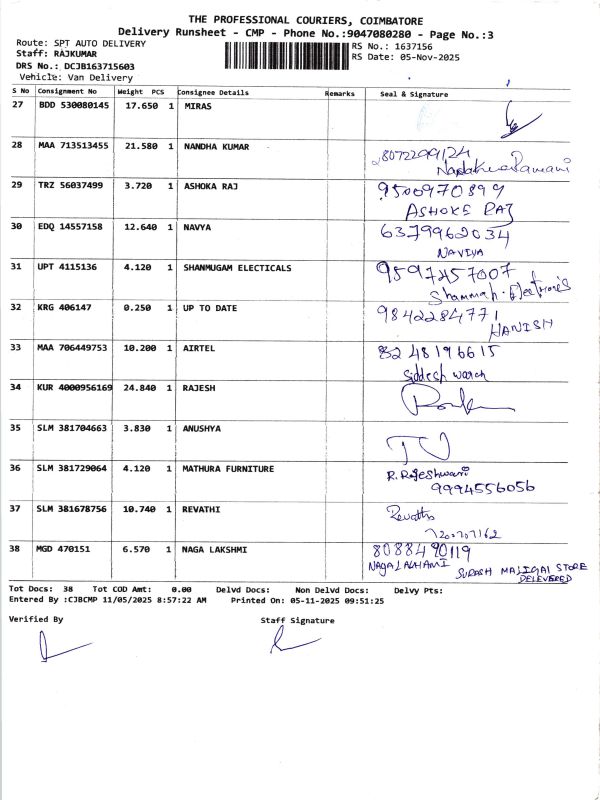 THE PROFESSIONAL COURIERS, COIMBATORE
Delivery Runsheet - CMP - Phone No.:9047080280 - Page No.:3
Route: SPT AUTO DELIVERY RS No.: 1637156
Staff: RAJKUMAR RS Date: 05-Nov-2025
DRS No.: DCJB163715603
Vehicle: Van Delivery
S No Consignment No Weight PCS Consignee Details Remarks Seal & Signature
27 BDD 530080145 17.650 1 MIRAS
28 MAA 713513455 21.580 1 NANDHA KUMAR 8072299124
29 TRZ 56037499 3.720 1 ASHOKA RAJ 9500970899
ASHOKE RAJ
30 EDQ 14557158 12.640 1 NAVYA 6379962034
NAVIYA
31 UPT 4115136 4.120 1 SHANMUGAM ELECTICALS 9597457007
32 KRG 406147 0.250 1 UP TO DATE 9842284771
HANISH
33 MAA 706449753 10.200 1 AIRTEL 8248196615
Siddesh
34 KUR 4000956169 24.840 1 RAJESH
35 SLM 381704663 3.830 1 ANUSHYA
36 SLM 381729064 4.120 1 MATHURA FURNITURE R. Rajeshwari
9994556056
37 SLM 381678756 10.740 1 REVATHI Revathi
38 MGD 470151 6.570 1 NAGA LAKSHMI 8088490119
SURASH MALIGAI STORE
DELEVERED
Tot Docs: 38 Tot COD Amt: 0.00 Delvd Docs: Non Delvd Docs: Delvy Pts:
Entered By :CJBCMP 11/05/2025 8:57:22 AM Printed On: 05-11-2025 09:51:25
Verified By Staff Signature